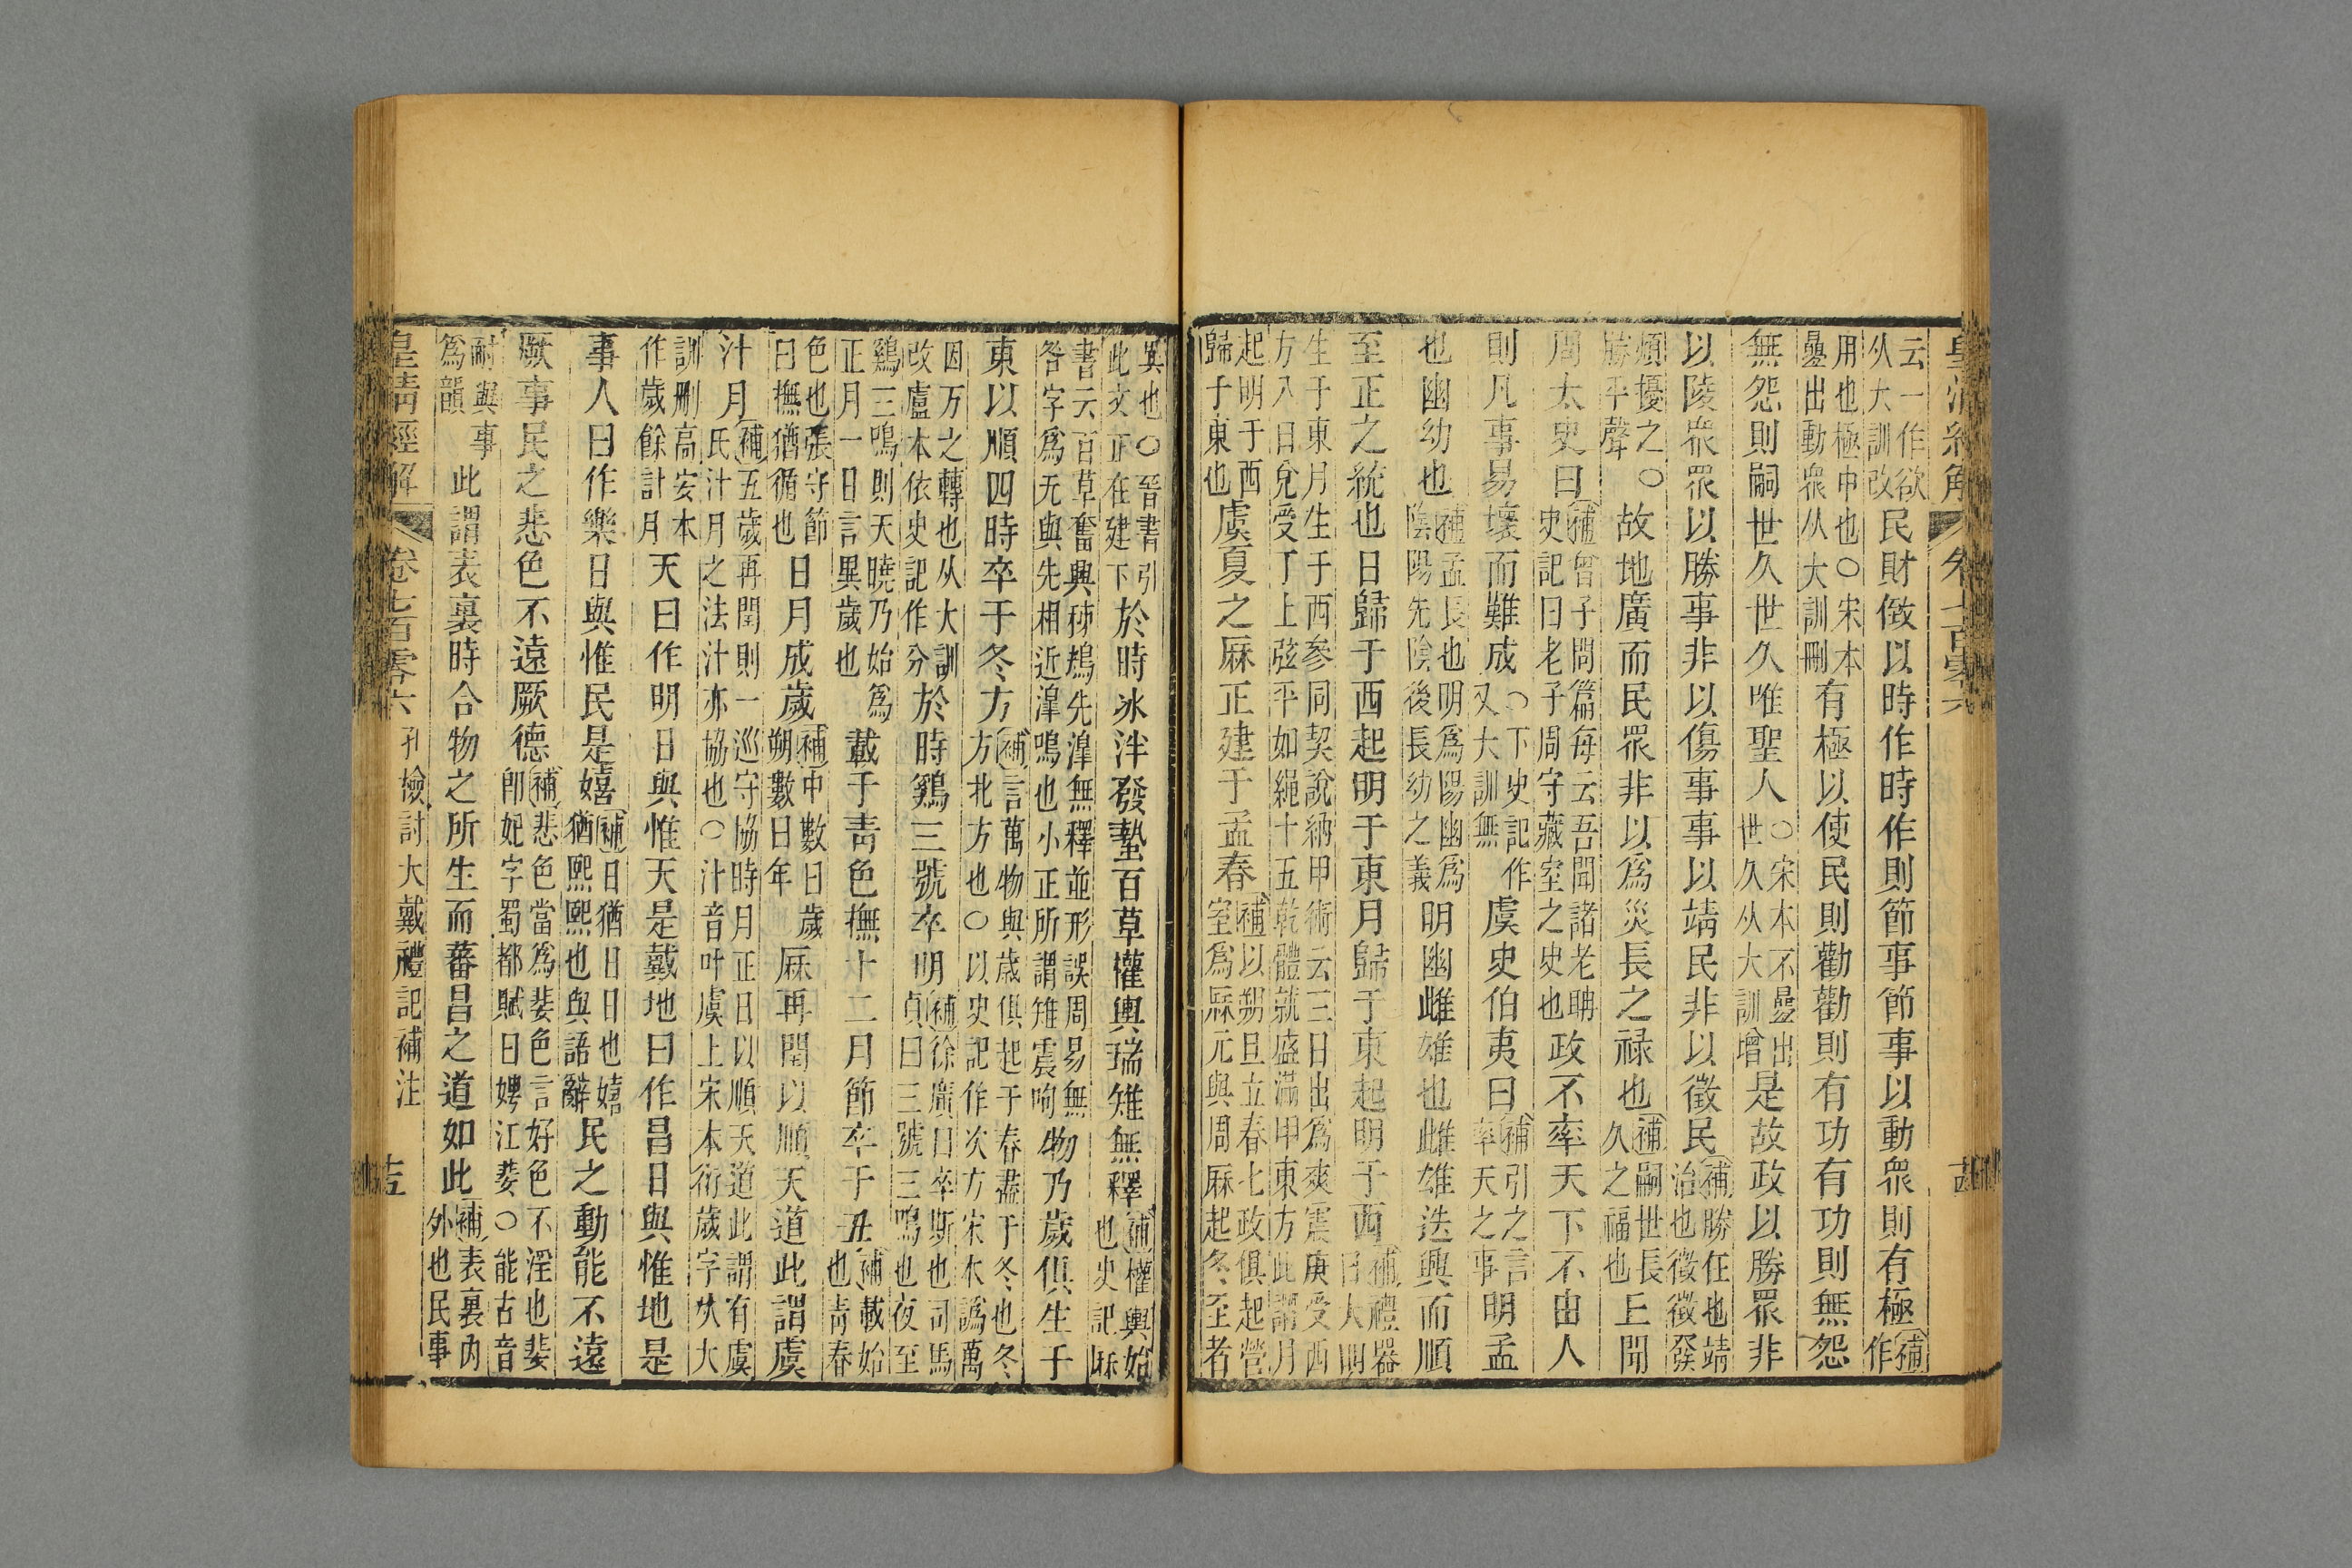 皇清經解 卷七百零六
云一作欲
从大訓改民財儉以時作時作則節事節事以動衆則有極補
作
用也極中也○宋本
曑出動衆从大訓刪有極以使民則勸勸則有功有功則無怨
無怨則嗣世久世久唯聖人○宋本不曑出
世久从大訓增是故政以勝眾非
以陵眾眾以勝事非以傷事事以靖民非以徵民補勝任也靖
治也徵徵發
煩擾之○
勝平聲故地廣而民眾非以爲災長之祿也補嗣世長
久之福也上聞
周太史曰補曾子問篇每云吾聞諸老聃
史記曰老子周守藏室之史也政不率天下不由人
則凡事易壞而難成○下史記作
又大訓無虞史伯夷曰補引之言
率天之事明孟
也幽幼也補孟長也明爲陽幽爲
陰陽先陰後長幼之義明幽雌雄也雌雄迭興而順
至正之統也日歸于西起明于東月歸于東起明于西補禮器
曰大明
生于東月生于西參同契說納甲術云三日出爲爽震庚受西
方八日兌受丁上弦平如繩十五乾體就盛滿甲東方此謂月
起明于西
歸于東也虞夏之厤正建于孟春補以朔旦立春七政俱起營
室爲厤元與周厤起冬至者
異也○晉書引
此文正在建下於時冰泮發蟄百草權輿瑞雉無釋補權輿始
也史記厤
書云百草奮興秭鴂先滜無釋並形誤周易無
咎字爲无與先相近滜鳴也小正所謂雉震呴物乃歲俱生于
東以順四時卒于冬方補言萬物與歲俱起于春盡于冬也冬
方北方也○以史記作次方宋本譌萬
因万之轉也从大訓
改盧本依史記作分於時鷄三號卒明補徐廣曰卒斯也司馬
貞曰三號三鳴也夜至
鷄三鳴則天曉乃始爲
正月一日言異歲也載于青色撫十二月節卒于丑補載始
也青春
色也張守節
曰撫猶循也日月成歲補中數曰歲
朔數曰年厤再閏以順天道此謂虞
汁月補五歲再閏則一巡守協時月正日以順天道此謂有虞
氏汁月之法汁亦協也○汁音叶虞上宋本衍歲字从大
訓刪高安本
作歲餘計月天曰作明日與惟天是戴地曰作昌日與惟地是
事人曰作樂日與惟民是嬉補日猶日日也嬉
猶熙熙也與語辭民之動能不遠
厥事民之悲色不遠厥德補悲色當爲斐色言好色不淫也斐
卽妃字蜀都賦曰娉江斐○能古音
耐與事
爲韻此謂表裏時合物之所生而蕃昌之道如此補表裏內
外也民事
皇清經解 卷七百零六 孔檢討大戴禮記補注